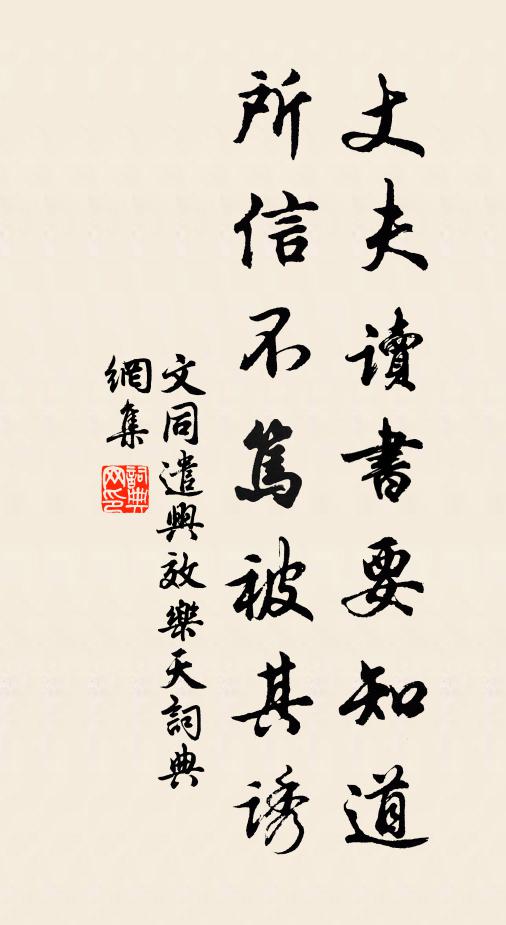 丈夫讀書要知道
所信不篤被其誘
文同遣興效樂天詞典
網集
詞典網印